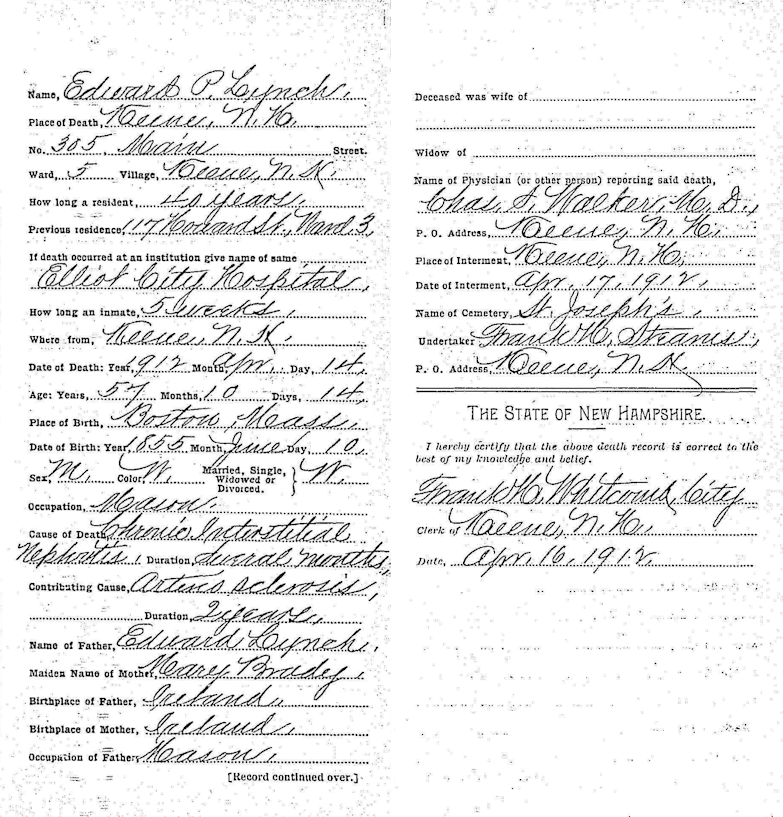 Name, Edward P. Lynch.
Place of Death, Keene, N. H.
No. 305, Main Street.
Ward, 5 Village, Keene, N. H.
How long a resident, 40 years.
Previous residence, 117 Howard St., Ward 3,
If death occurred at an institution give name of same
Elliot City Hospital,
How long an inmate, 5 weeks.
Where from, Keene, N. H.
Date of Death: Year, 1912 Month, Apr. Day, 14,
Age: Years, 57 Months, 10 Days, 14,
Place of Birth, Boston, Mass.
Date of Birth: Year, 1855 Month, June Day, 10,
Sex, M. Color, W. Married, Single, Widowed or Divorced. } W.
Occupation, Mason.
Cause of Death, Chronic Interstitial
Nephritis. Duration, several months,
Contributing Cause, Arterio sclerosis,
Duration, 2 years.
Name of Father, Edward Lynch.
Maiden Name of Mother, Mary Brady,
Birthplace of Father, Ireland.
Birthplace of Mother, Ireland.
Occupation of Father, Mason.
[Record continued over.]
Deceased was wife of
Widow of
Name of Physician (or other person) reporting said death,
Chas. S. Walker, M. D.,
P. O. Address, Keene, N. H.
Place of Interment, Keene, N. H.
Date of Interment, Apr. 17, 1912.
Name of Cemetery, St. Joseph's.
Undertaker Frank H. Stearns,
P. O. Address, Keene, N. H.
THE STATE OF NEW HAMPSHIRE.
I hereby certify that the above death record is correct to the
best of my knowledge and belief.
Frank H. Whitcomb, City
Clerk of Keene, N. H.
Date, Apr. 16, 1912.